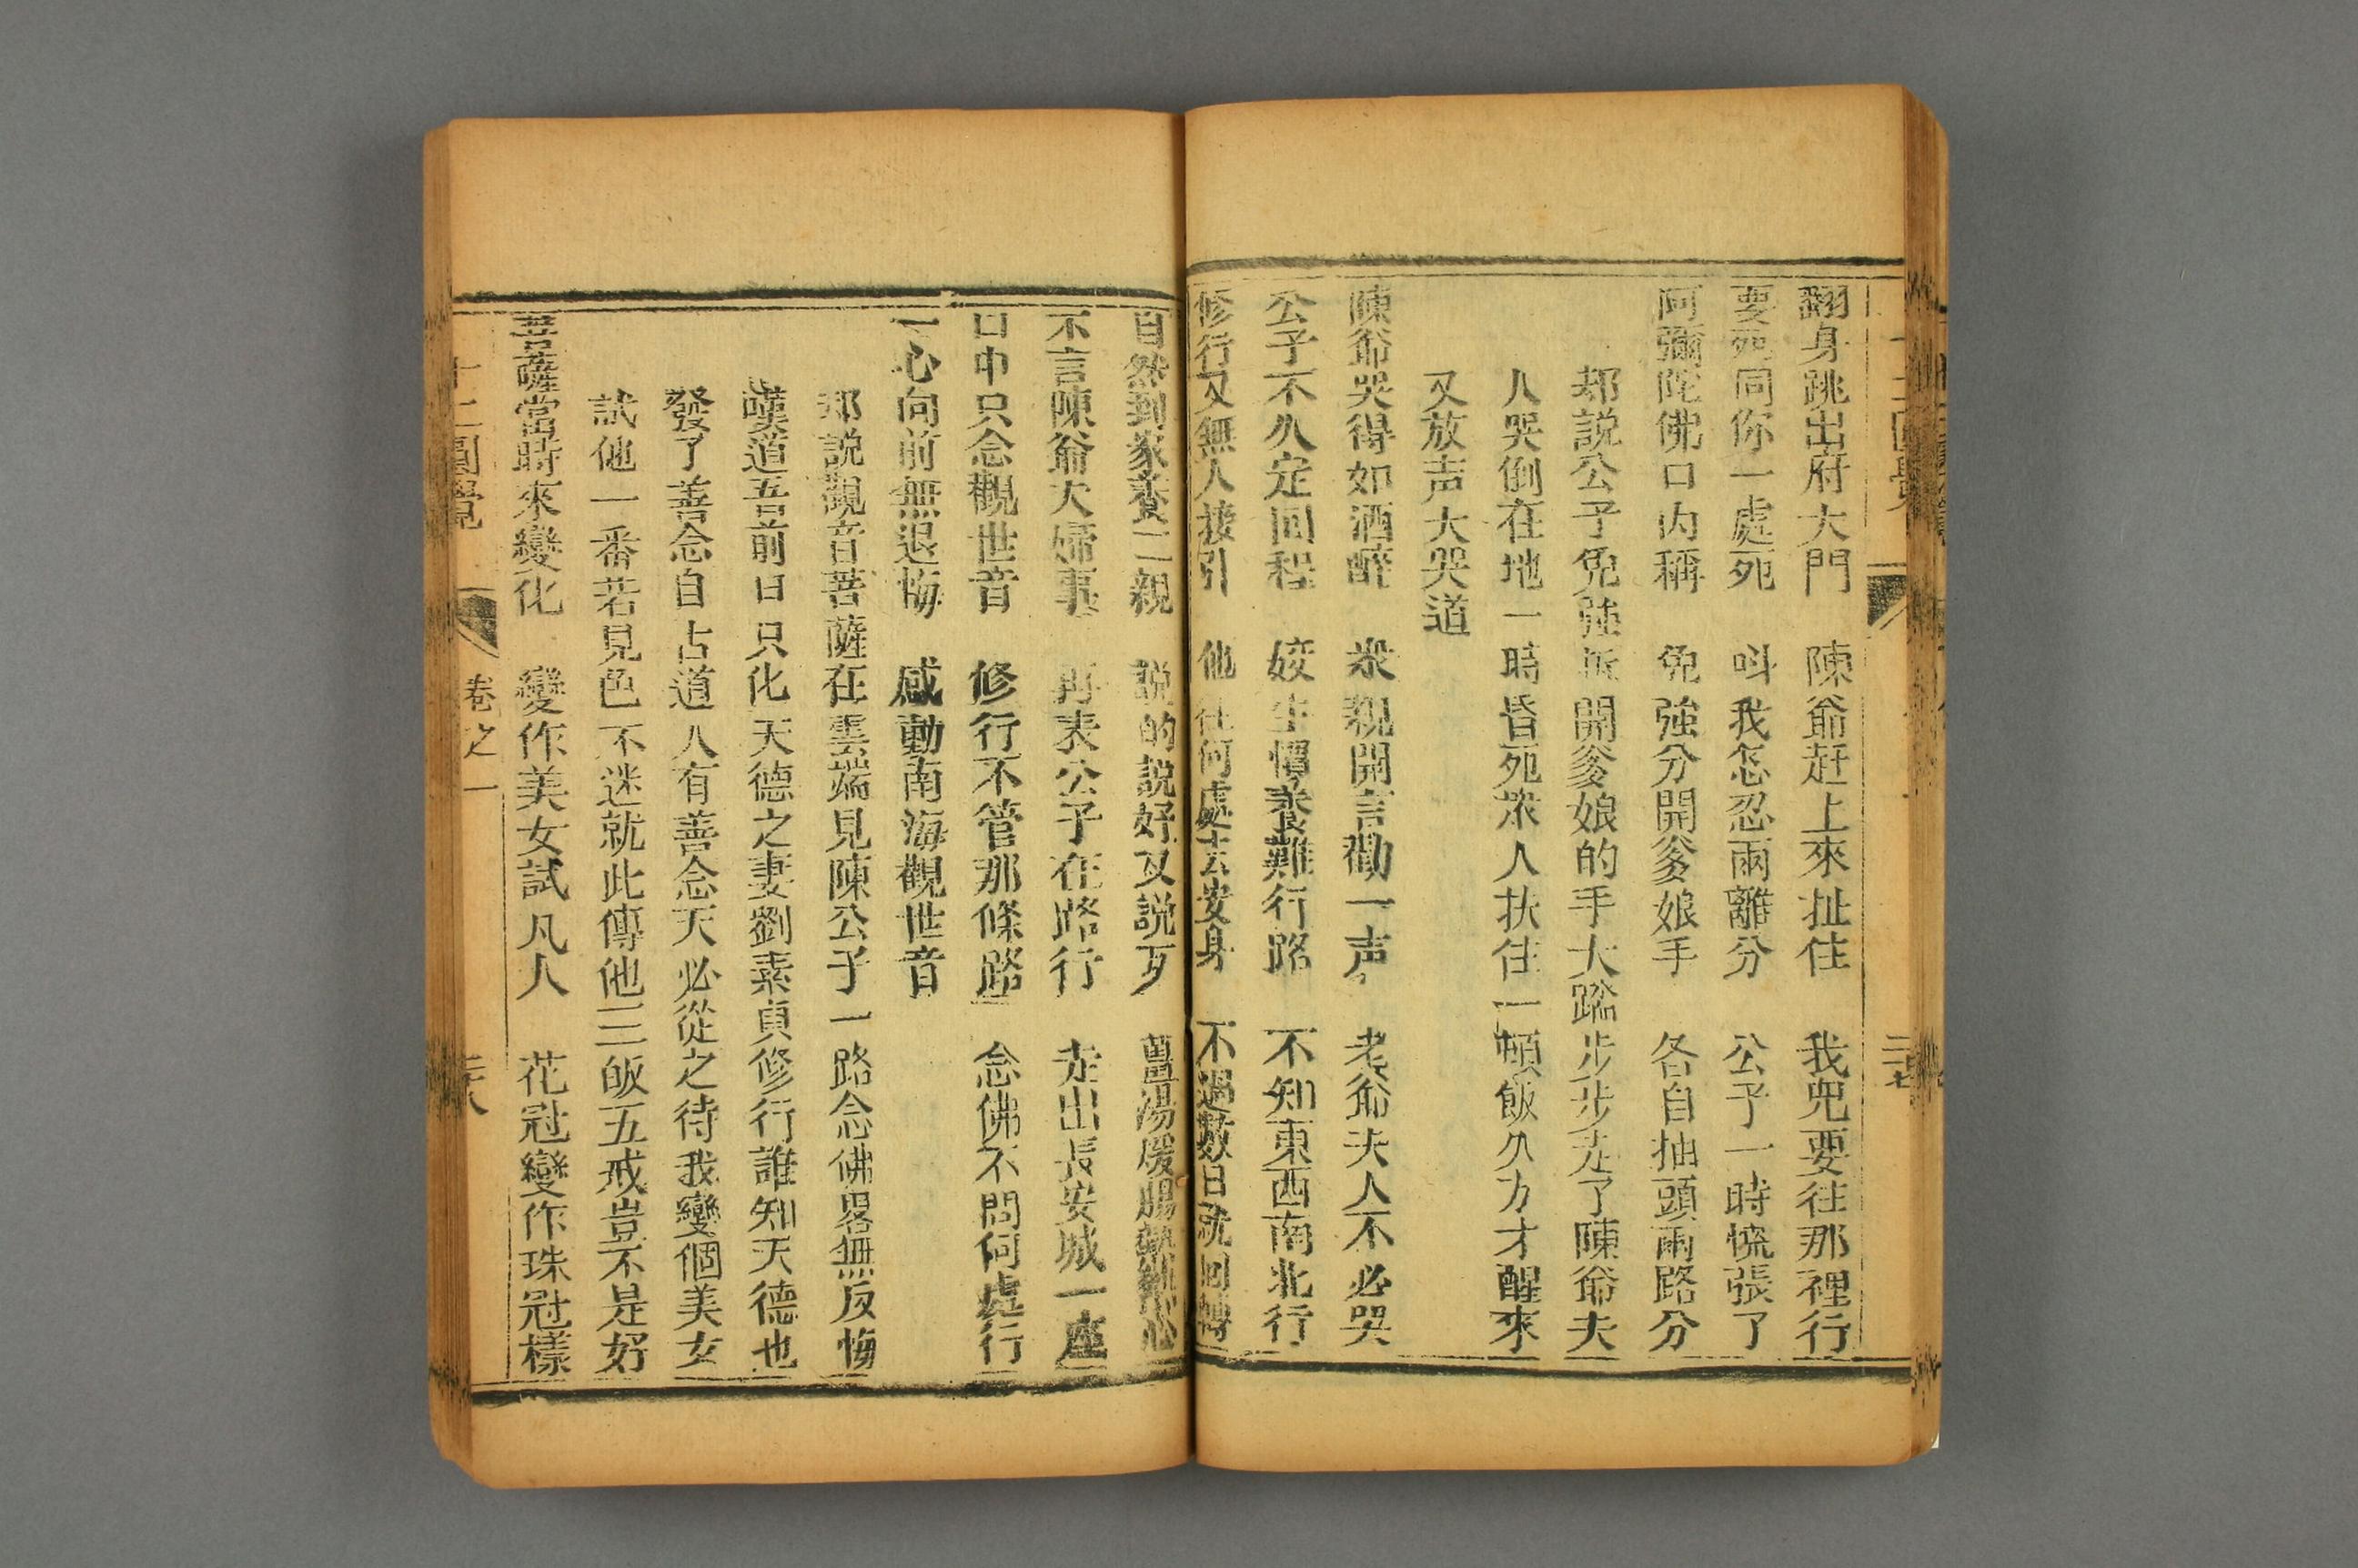 翻身跳出府大門　陳爺赶上來扯住　我兒要往那裡行
要死同你一處死　呌我怎忍兩離分　公子一時慌張了
阿彌陀佛口内稱　免強分開爹娘手　各自抽頭兩路分
却説公子免強拆開爹娘的手大踏步步走了陳爺夫
人哭倒在地一時昏死衆人扶住一頓飯久方才醒來
又放声大哭道
陳爺哭得如酒醉　衆親開言勸一声　老爺夫人不必哭
公子不久定回程　姣生慣養難行路　不知東西南北行
修行又無人接引　他往何處去安身　不過數日就回轉
自然到家養二親　説的説好又説歹　薑湯煖腸
不言陳爺夫婦事　再表公子在路行　走出長安城一座
口中只念觀世音　修行不管那條路　念佛不問何處行
一心向前無退悔　感動南海觀世音
却說觀音菩薩在雲端見陳公子一路念佛畧無反悔
嘆道吾前日只化天德之妻劉素貞修行誰知天德也
發了善念自古道人有善念天必從之待我變個美女
試他一番若見色不迷就此傳他三皈五戒豈不是好
菩薩當時來變化　變作美女試凡人　花冠變作珠冠樣
十二圓覺　卷之一　二十八